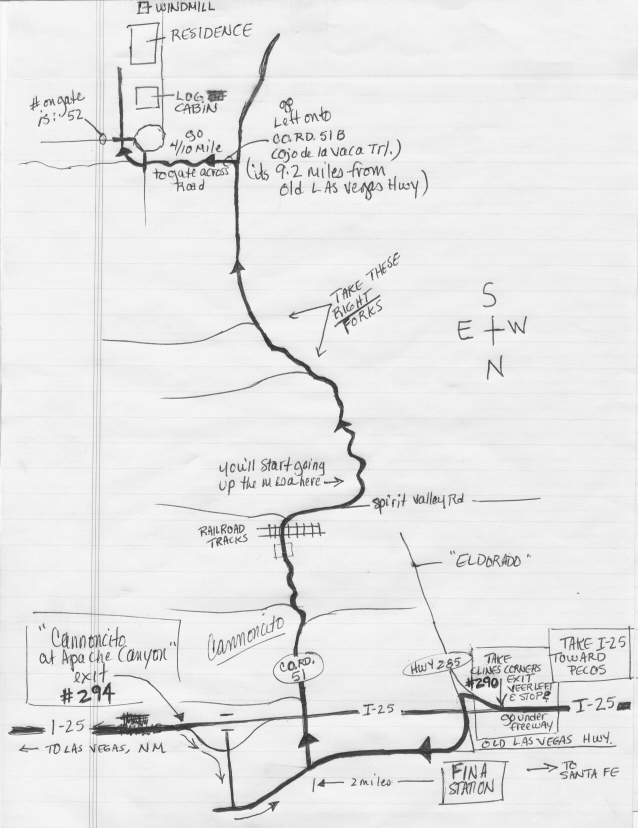 WINDMILL
RESIDENCE
LOG
CABIN
# on gate
is: 52
go
4/10 MILE
to gate across
Road
go
Left onto
CO.RD. 51B
(ojo de la vaca Trl.)
(its 9.2 miles from
Old LAS Vegas Hwy)
TAKE THESE
RIGHT
FORKS
S
E W
N
you'll start going
up the mesa here →
spirit valley Rd
RAILROAD
TRACKS
"ELDORADO"
"Cannoncito
at Apache Canyon"
exit
#294
Cannoncito
CO.RD.
51
HWY 285
TAKE
CLINES CORNERS
#290 EXIT
VEER LEFT
& STOP
TAKE I-25
TOWARD
PECOS
I-25
I-25
I-25
go under
freeway
← TO LAS VEGAS, NM
OLD LAS VEGAS HWY.
← 2 miles
FINA
STATION
→ TO
SANTA FE